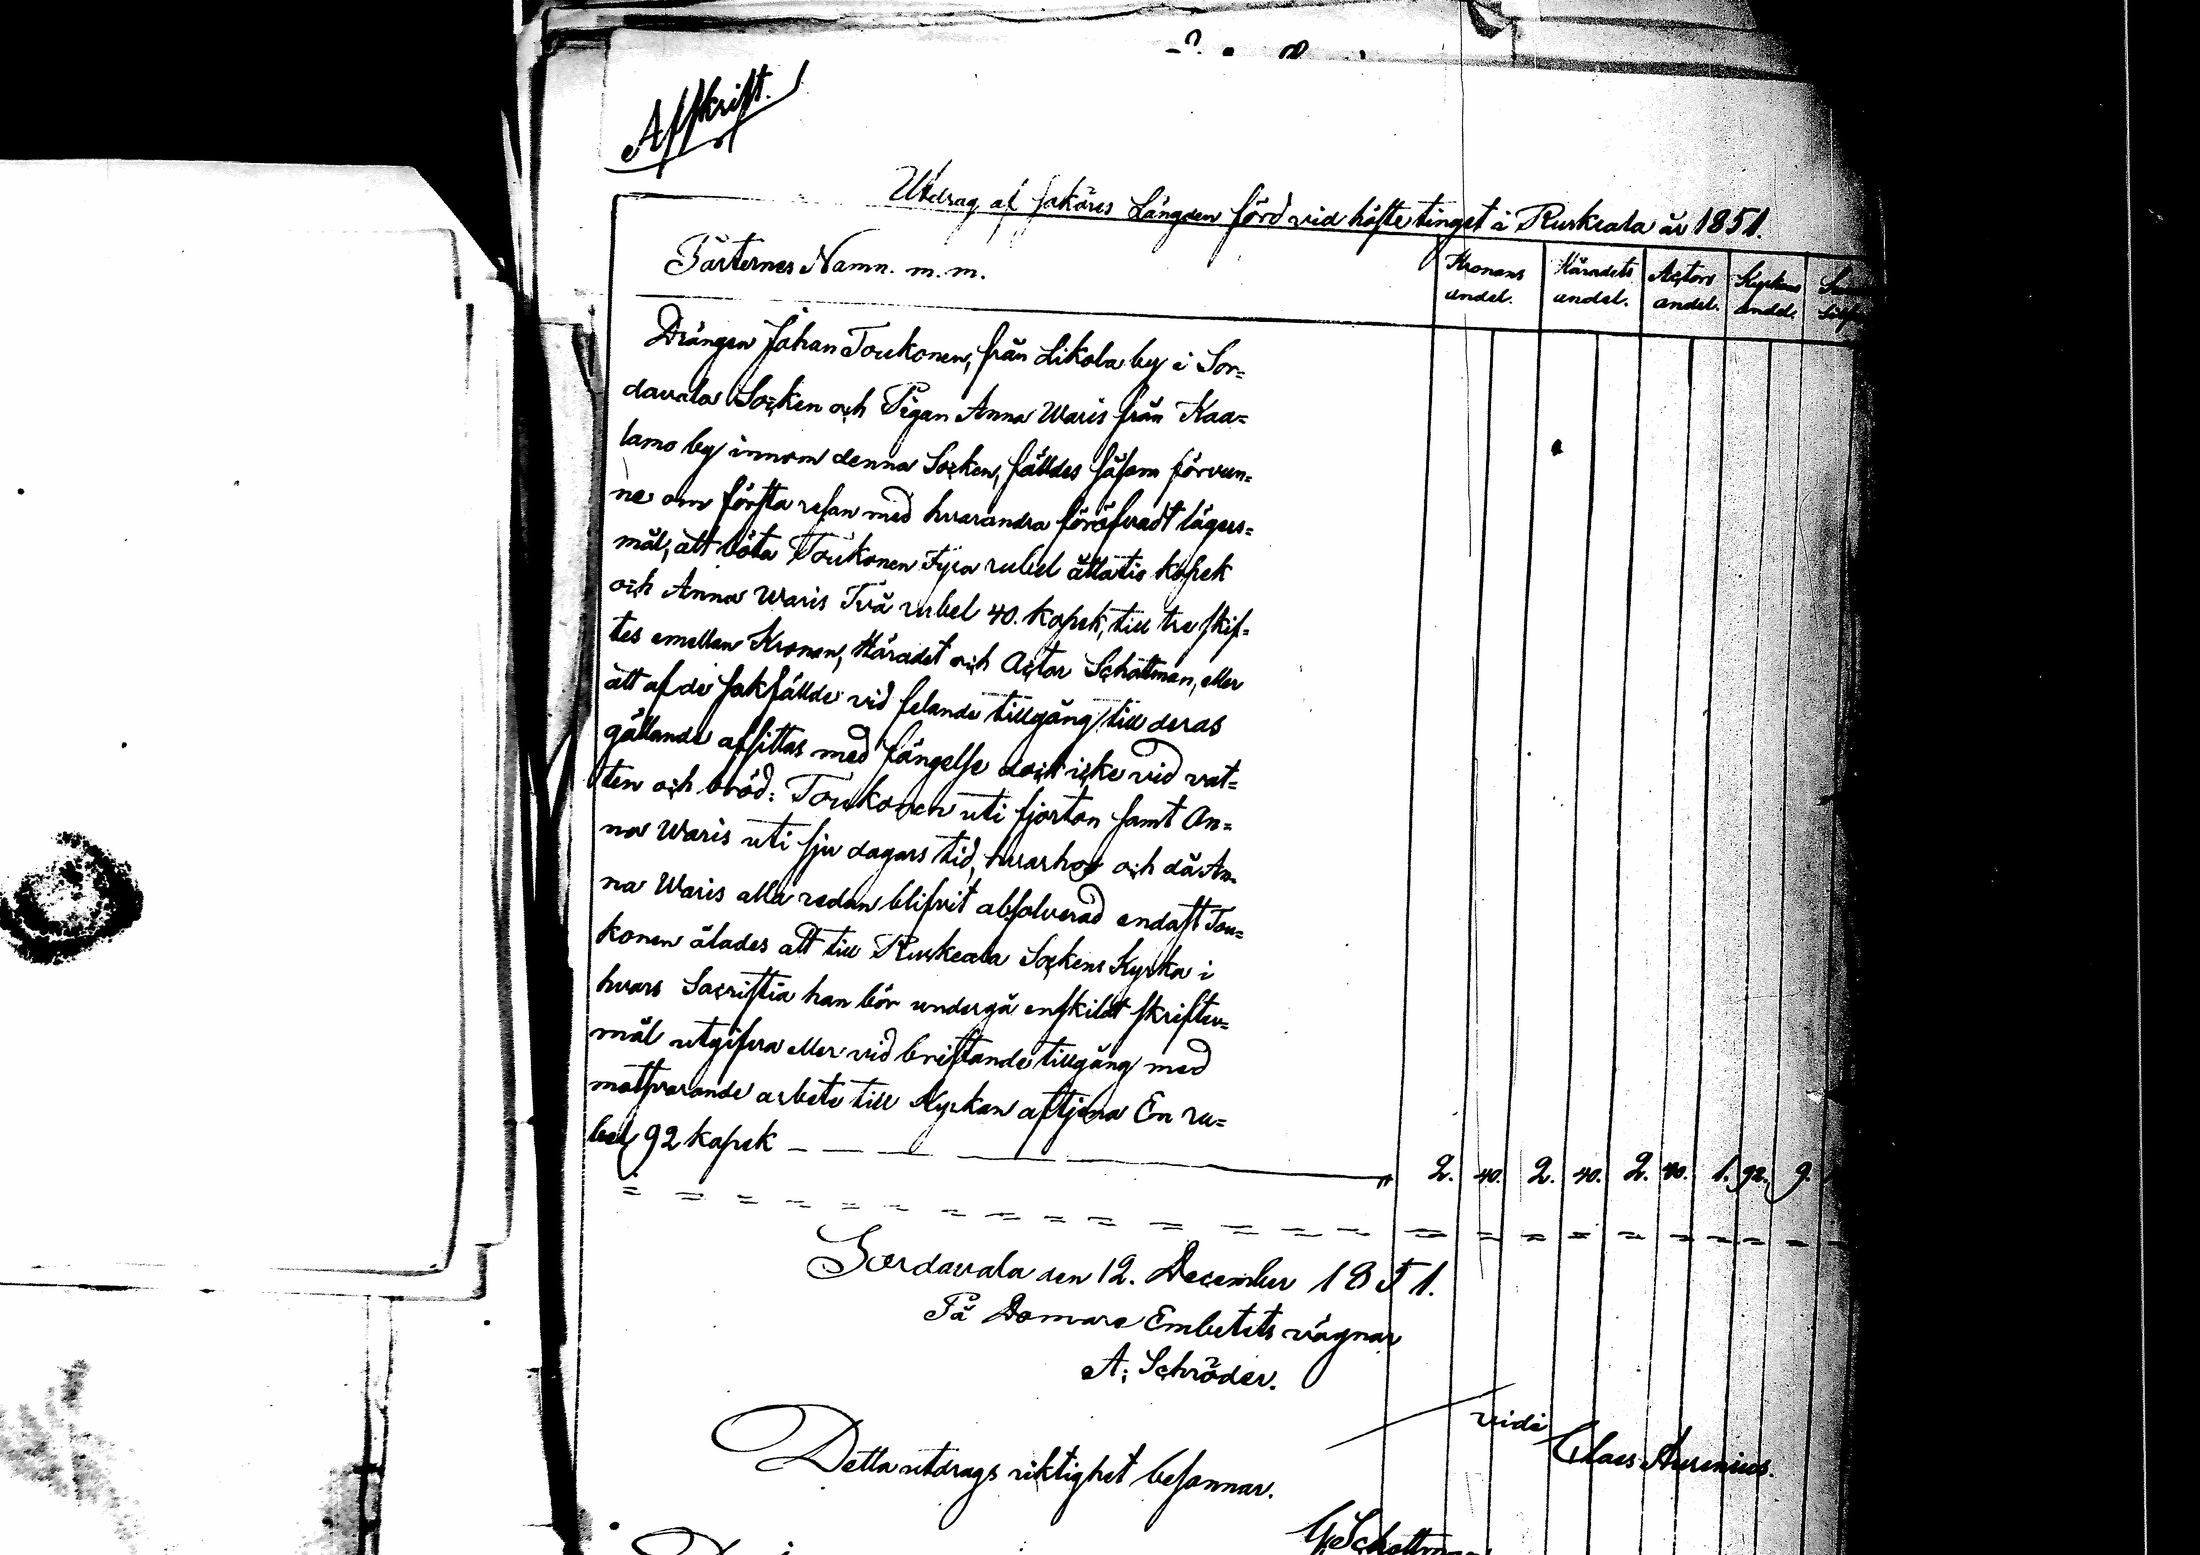 Afskrift.
Utdrag af saköres Längden förd vid höste tinget i Ruskeala år 1851.
Parternes Namn. m. m.
Kronans andel.
Häradets andel.
Actors andel.
Kyrkans andel.
Drängen Johan Toukonen, från Likola by i Sor=
davala Socken och Pigan Anna Waris från Kaa=
lamo by innom denna Socken, fälldes såsom förvun=
ne om första resan med hvarandra föröfvadt lägers=
mål, att böta Toukonen Fyra rubel åttatio kopek
och Anna Waris Två rubel 40. kopek, till tre skif=
tes emellan Kronan, Häradet och Actor Schottman, eller
att af de sakfällde vid felande tillgång till deras
gällande afsittas med fängelse dock icke vid vat=
ten och bröd: Toukonen uti fjorton samt An=
na Waris uti sju dagars tid, hvarhos och då An=
na Waris alla redan blifvit absolverad endast Tou=
konen ålades att till Ruskeala Sockens Kyrka i
hvars Sacristia han bör undergå enskildt skrifter=
mål utgifva eller vid bristande tillgång med
motsvarande arbete till Kyrkan aftjena En ru=
bel 92 kopek _ _ _ " 2. 40. 2. 40. 2. 40. 1. 92. 9.
Sordavala den 12. December 1851.
På Domare Embetets vägnar
A: Schröder.
vidi
Claes Aurenius.
Detta utdrags riktighet besannar.
G Schottman